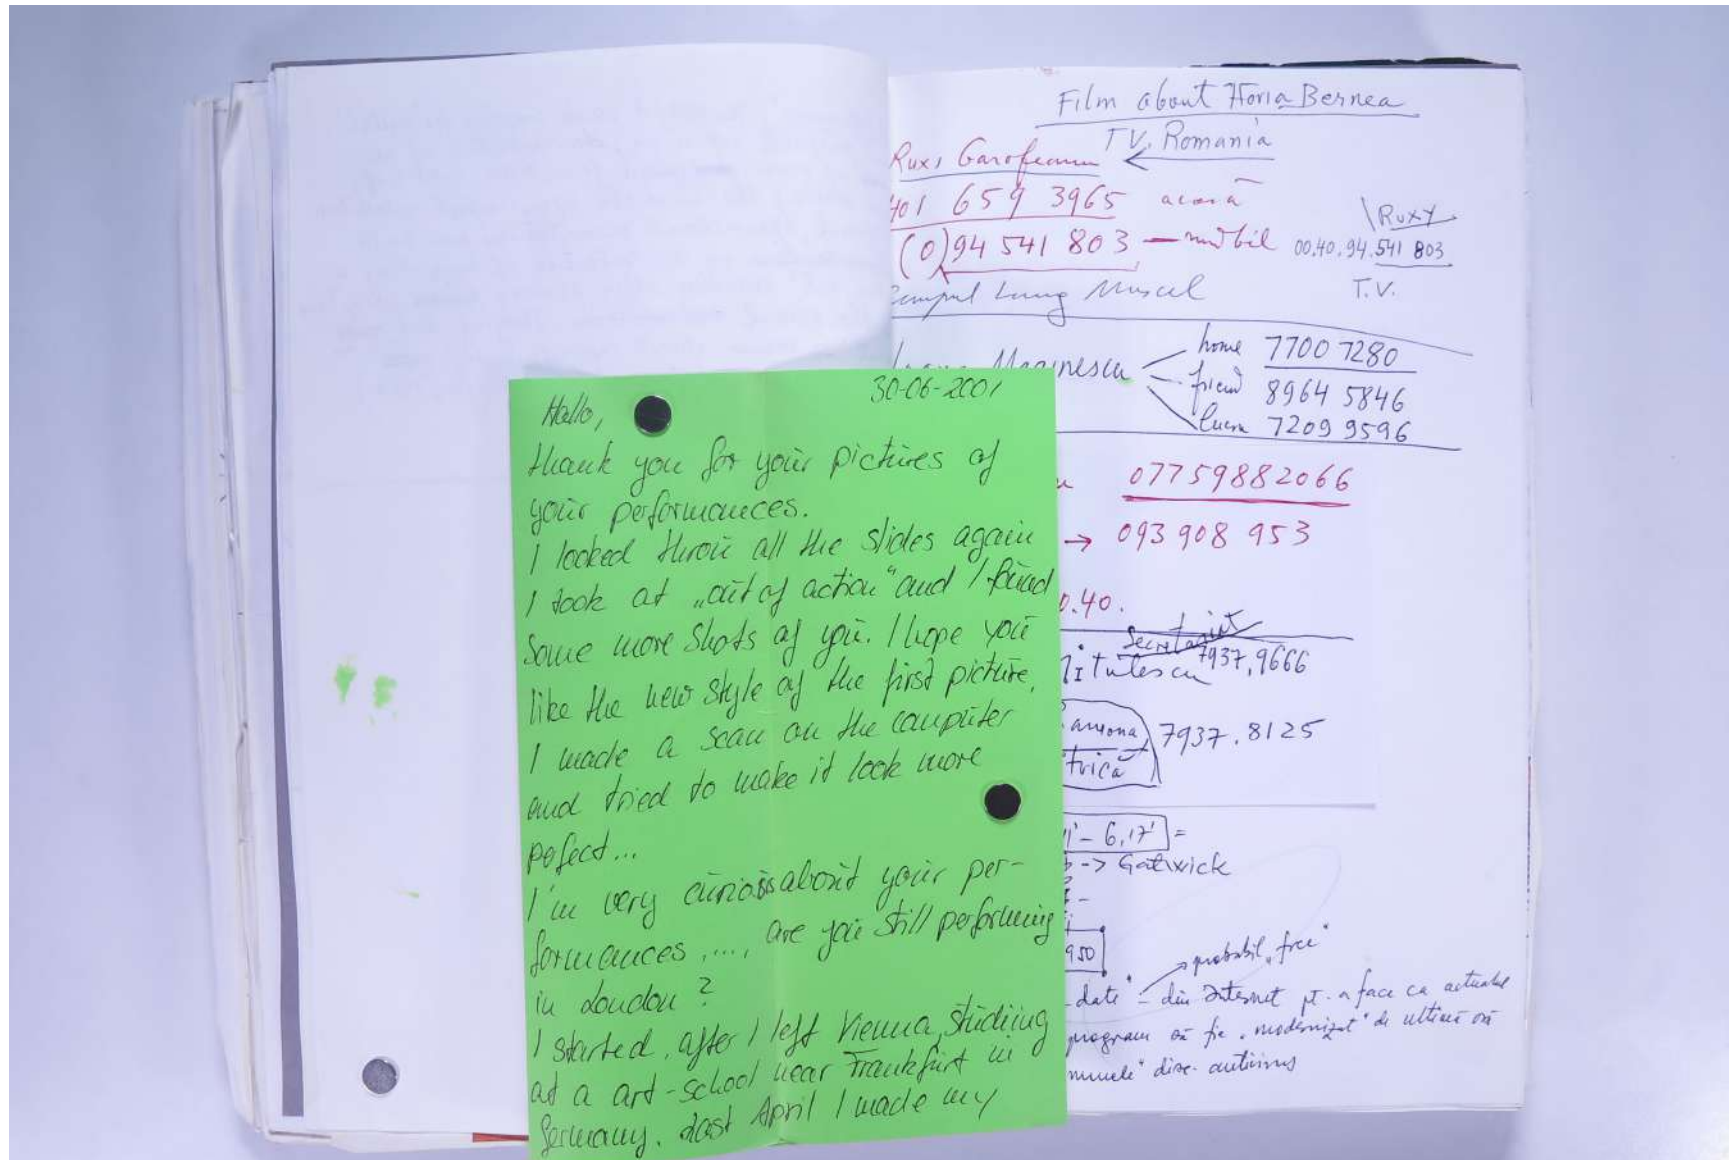 Film about Horia Bernea
TV. Romania
Ruxi Garofeanu
401 659 3965 acasă
(0)94 541 803 — mobil
Ruxy
00.40.94.541 803
T.V.
Campul Lung Muscel
home 7700 7280
friend 8964 5846
7209 9596
07759882066
→ 093 908 953
0.40.
Secretariat
7937.9666
itulescu
7937.8125
trică
1' – 6,17' =
-> Gatwick
950
probabil „free"
date" – din Internet pt. a face ca actualul
program să fie „modernizat" de ultimă oră
30-06-2001
Hallo,
thank you for your pictures of
your performances.
I looked throu all the slides again
I took at „out of action" and I found
some more shots of you. I hope you
like the new style of the first picture,
I made a scan on the computer
and tried to make it look more
pefect...
I'm very curious about your per-
formances ...., are you still performing
in London?
I started, after I left Vienna, studiing
at a art-school near Frankfurt in
Germany. Last April I made my